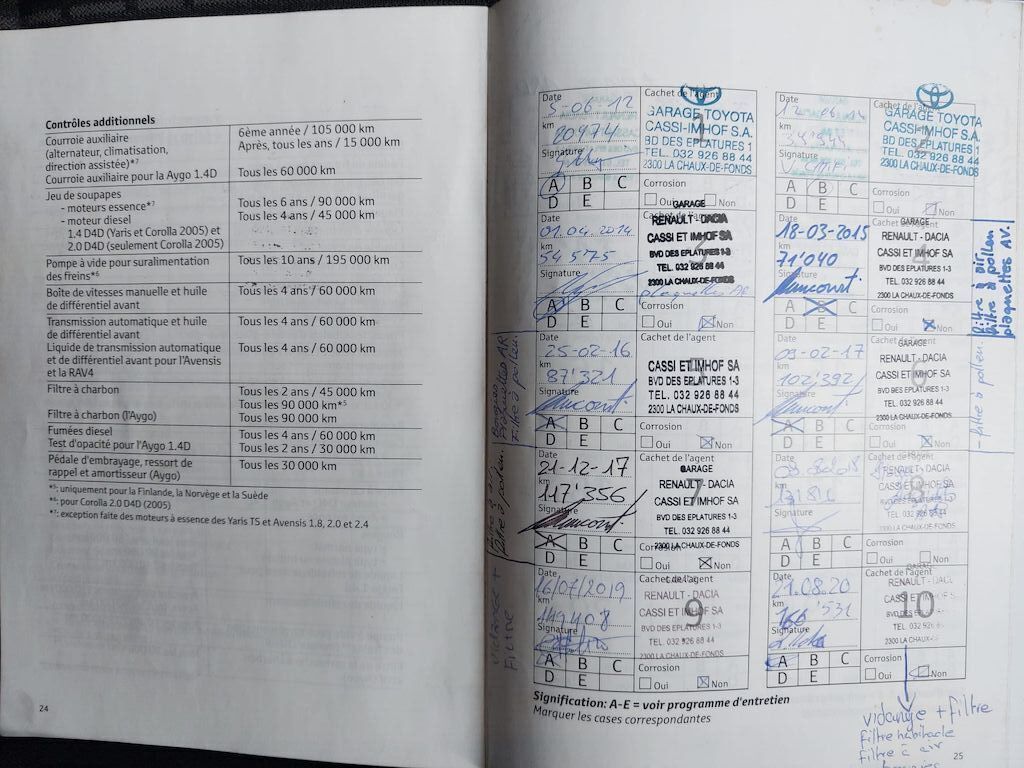 Contrôles additionnels
Courroie auxiliaire
(alternateur, climatisation,
direction assistée)*⁷
6ème année / 105 000 km
Après, tous les ans / 15 000 km
Courroie auxiliaire pour la Aygo 1.4D
Tous les 60 000 km
Jeu de soupapes
- moteurs essence*⁷
Tous les 6 ans / 90 000 km
- moteur diesel
Tous les 4 ans / 45 000 km
1.4 D4D (Yaris et Corolla 2005) et
2.0 D4D (seulement Corolla 2005)
Pompe à vide pour suralimentation
des freins*⁶
Tous les 10 ans / 195 000 km
Boîte de vitesses manuelle et huile
de différentiel avant
Tous les 4 ans / 60 000 km
Transmission automatique et huile
de différentiel avant
Tous les 4 ans / 60 000 km
Liquide de transmission automatique
et de différentiel avant pour l'Avensis
et la RAV4
Tous les 4 ans / 60 000 km
Filtre à charbon
Tous les 2 ans / 45 000 km
Tous les 90 000 km*⁵
Filtre à charbon (l'Aygo)
Tous les 90 000 km
Fumées diesel
Tous les 4 ans / 60 000 km
Test d'opacité pour l'Aygo 1.4D
Tous les 2 ans / 30 000 km
Pédale d'embrayage, ressort de
rappel et amortisseur (Aygo)
Tous les 30 000 km
*⁵: uniquement pour la Finlande, la Norvège et la Suède
*⁶: pour Corolla 2.0 D4D (2005)
*⁷: exception faite des moteurs à essence des Yaris TS et Avensis 1.8, 2.0 et 2.4
24
Date
5-06-12
km
20974
Signature
Cachet de l'agent
1
GARAGE TOYOTA
CASSI-IMHOF S.A.
BD DES EPLATURES 1
TEL. 032 926 88 44
2300 LA CHAUX-DE-FONDS
A B C
D E
Corrosion
Oui Non
Date
km
Signature
Cachet de l'agent
GARAGE TOYOTA
CASSI-IMHOF S.A.
BD DES EPLATURES 1
TEL. 032 926 88 44
2300 LA CHAUX-DE-FONDS
A B C
D E
Corrosion
Oui Non
Date
01.04.2014
km
54 575
Signature
GARAGE
RENAULT - DACIA
CASSI ET IMHOF SA
BVD DES EPLATURES 1-3
TEL. 032 926 88 44
2300 LA CHAUX-DE-FONDS
plaquettes AR
A B C
D E
Oui Non
Date
18-03-2015
km
71'040
Signature
GARAGE
RENAULT - DACIA
CASSI ET IMHOF SA
BVD DES EPLATURES 1-3
TEL. 032 926 88 44
2300 LA CHAUX-DE-FONDS
A B C
D E
Oui Non
filtre à air
filtre à pollen
plaquettes AV.
Date
25-02-16
km
87'321
Signature
Cachet de l'agent
CASSI ET IMHOF SA
BVD DES EPLATURES 1-3
TEL. 032 926 88 44
2300 LA CHAUX-DE-FONDS
A B C
D E
Corrosion
Oui Non
Plaquettes AR
Filtre à pollen.
Date
09-02-17
km
102'392
Signature
GARAGE
RENAULT - DACIA
CASSI ET IMHOF SA
BVD DES EPLATURES 1-3
TEL. 032 926 88 44
2300 LA CHAUX-DE-FONDS
A B C
D E
Corrosion
Oui Non
filtre à pollen.
Date
21-12-17
km
117'356
Signature
Cachet de l'agent
7
GARAGE
RENAULT - DACIA
CASSI ET IMHOF SA
BVD DES EPLATURES 1-3
TEL. 032 926 88 44
2300 LA CHAUX-DE-FONDS
A B C
D E
Corrosion
Oui Non
filtre à pollen.
Date
km
Signature
Cachet de l'agent
RENAULT - DACIA
A B C
D E
Corrosion
Oui Non
Date
16/07/2019
km
149408
Signature
Cachet de l'agent
9
RENAULT - DACIA
CASSI ET IMHOF SA
BVD DES EPLATURES 1-3
TEL. 032 926 88 44
2300 LA CHAUX-DE-FONDS
A B C
D E
Corrosion
Oui Non
vidange +
Filtre
Date
21.08.20
km
166'531
Signature
Cachet de l'agent
10
RENAULT - DACIA
CASSI ET IMHOF SA
A B C
D E
Corrosion
Oui Non
vidange + filtre
Filtre habitacle
Filtre à air
Signification: A-E = voir programme d'entretien
Marquer les cases correspondantes
25